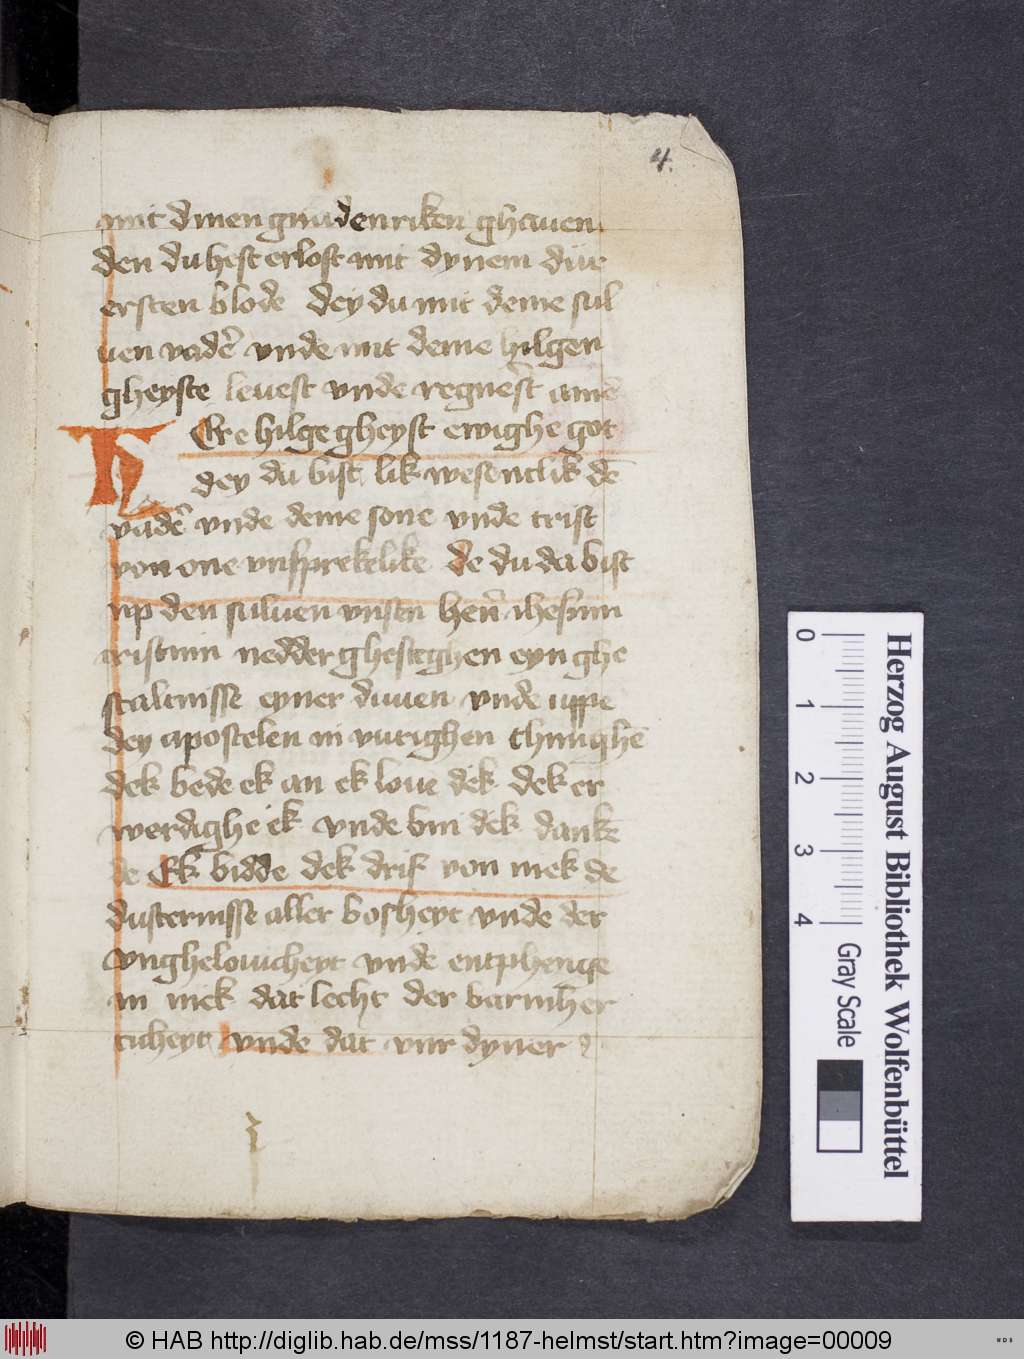 4.
mit dinen gnadenriken ghauen
den du hest erlost mit dynem dúr
ersten blode dey du mit deme sul
uen vader̄ vnde mit deme hilgen
gheyste leuest vnde regnest amē
HEre hilge gheyst ewighe got
dey du bist lik wesentlik dē
vader̄ vnde deme sone vnde trist
von one vnsprekelike de du da bist
up den suluen vnsen hern̄ ihesum
cristum nedder ghesteghen eyn ghe
staltnisse eyner duuen vnde uppe
dey apostelen in vurighen thunghē
dek bede ek an ek loue dek dek er
werdighe ek vnde bin dek dankē
de Ek bidde dek drif von mek de
dusternisse aller bosheyt vnde der
vngheloueheyt vnde entphenge
in mek dat lecht der barmher
ticheyt vnde dat vur dyner
Herzog August Bibliothek Wolfenbüttel
0 1 2 3 4 Gray Scale
© HAB http://diglib.hab.de/mss/1187-helmst/start.htm?image=00009